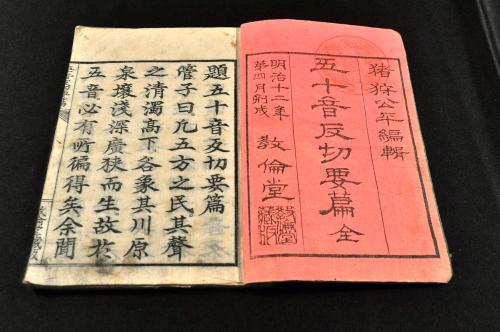 猪狩公年編輯
五十音反切要篇 全
明治十二年
第四月刻成
教倫堂
題五十音反切要篇
管子曰凡五方之民其聲
之清濁高下各象其川原
泉壤淺深廣狹而生故於
五音必有所偏得矣余聞